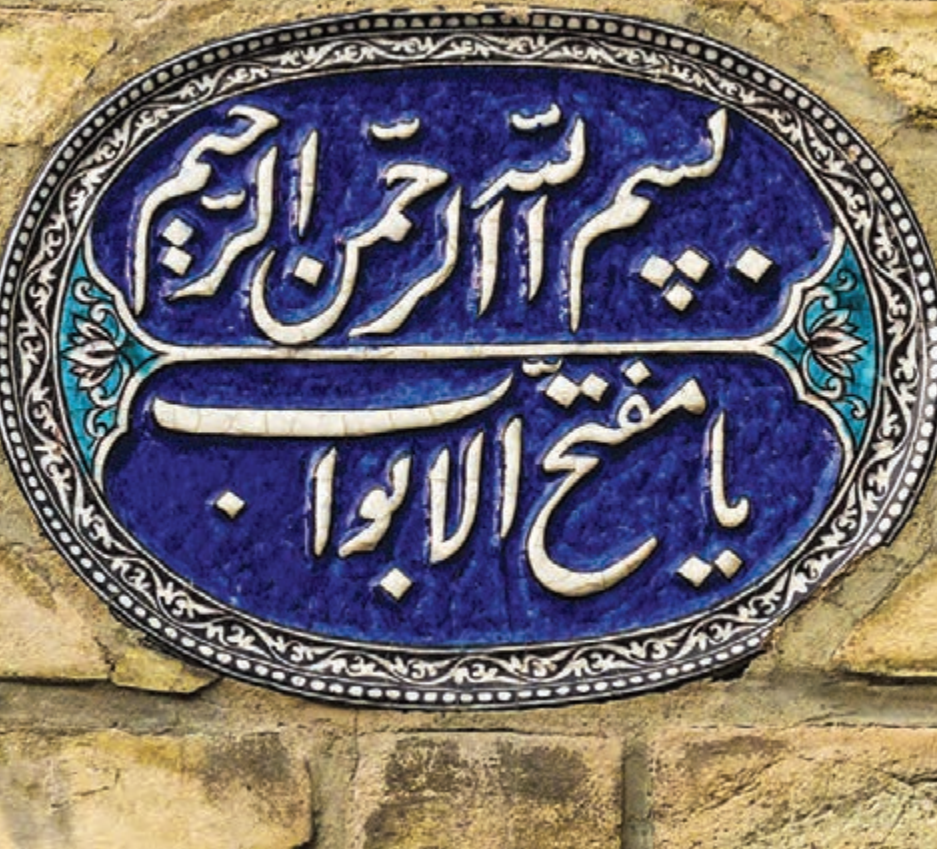 بسم الله الرحمن الرحیم
یا مفتّح الابواب